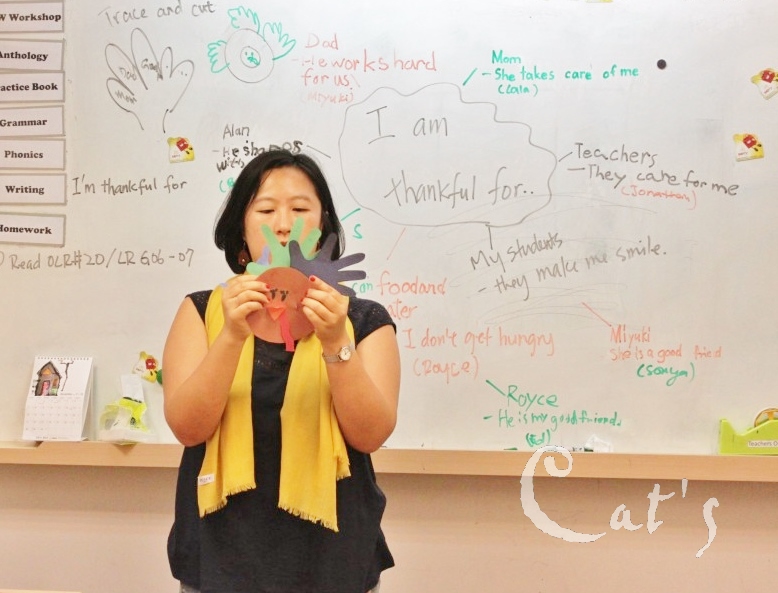 W Workshop
Anthology
Practice Book
Grammar
Phonics
Writing
Homework
Trace and cut
Mom
Dad
I'm thankful for
Read OLR#20/LR G.06-07
Dad
- He works hard
for us
(Miyuki)
Mom
- She takes care of me
(Lala)
Alan
- He shares
with
I am
thankful for..
Teachers
- They care for me
(Jonathan)
My students
- they make me smile.
food and
I don't get hungry
(Royce)
Miyuki
She is a good friend
(Sonya)
Royce
- He is my good friend.
Teachers O
Cat's